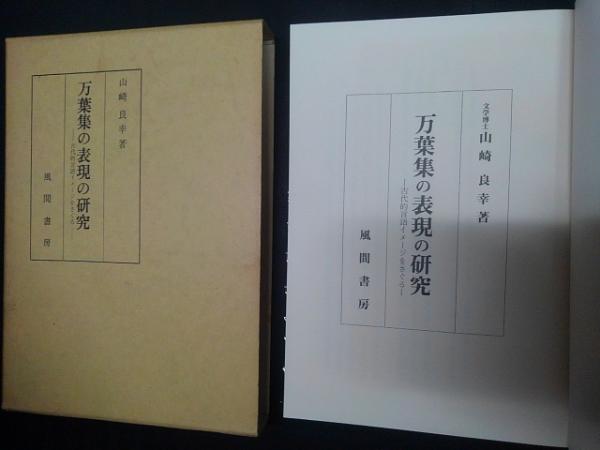 山崎良幸著
万葉集の表現の研究
―古代的言語イメージをさぐる―
風間書房
文学博士 山崎良幸著
万葉集の表現の研究
―古代的言語イメージをさぐる―
風間書房